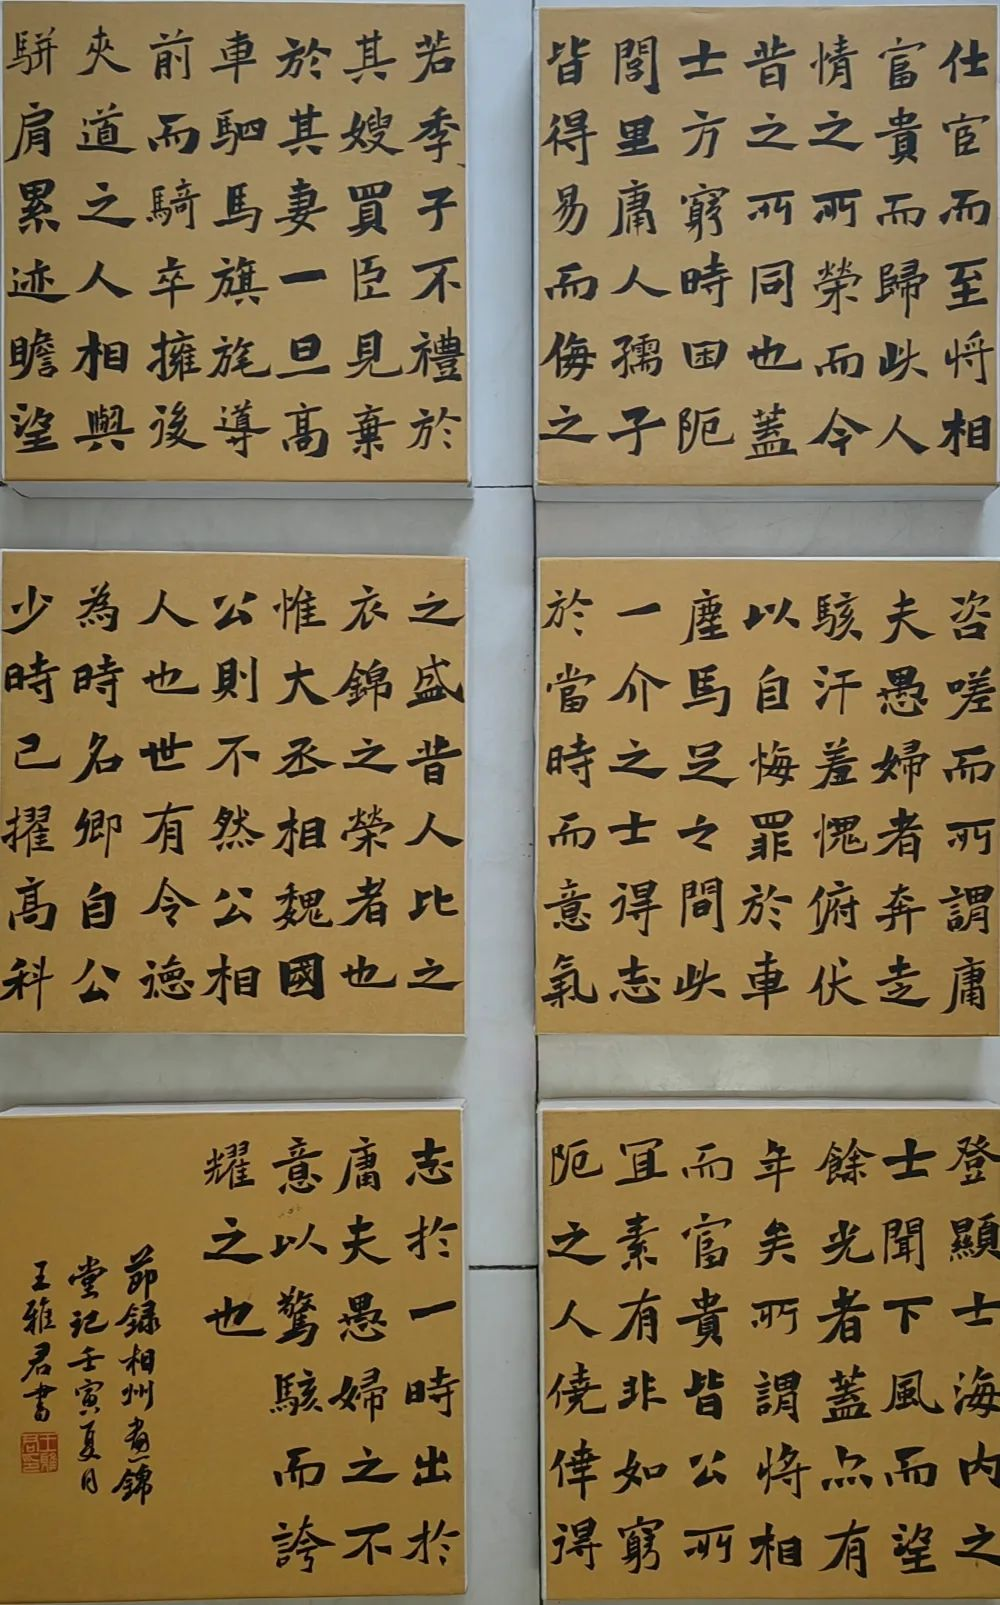 仕宦而至将相
富貴而歸此人
情之所榮而今
昔之所同也蓋
士方窮時困阨
閭里庸人孺子
皆得易而侮之
若季子不禮於
其嫂買臣見棄
於其妻一旦高
車駟馬旗旄導
前而騎卒擁後
夾道之人相與
駢肩累迹瞻望
咨嗟而所謂庸
夫愚婦者奔走
駭汗羞愧俯伏
以自悔罪於車
塵馬足之間此
一介之士得志
於當時而意氣
之盛昔人比之
衣錦之榮者也
惟大丞相魏國
公則不然公相
人也世有令德
為時名卿自公
少時已擢高科
登顯士海内之
士聞下風而望
餘光者蓋亦有
年矣所謂将相
而富貴皆公所
宜素有非如窮
阨之人僥倖得
志於一時出於
庸夫愚婦之不
意以驚駭而誇
耀之也
節録相州晝錦
堂記壬寅夏月
王雅君書